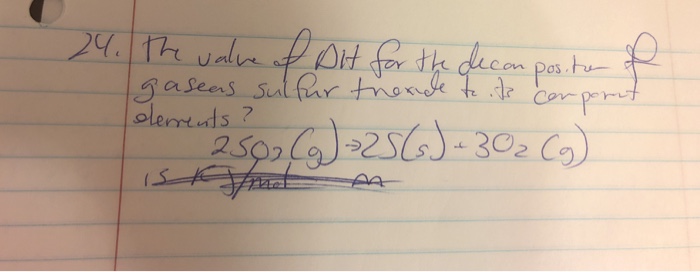 24. The value of ΔH for the decomposition of
gaseous sulfur trioxide to its component
elements?
2SO3(g)→2S(s)+3O2(g)
is KJ/mol